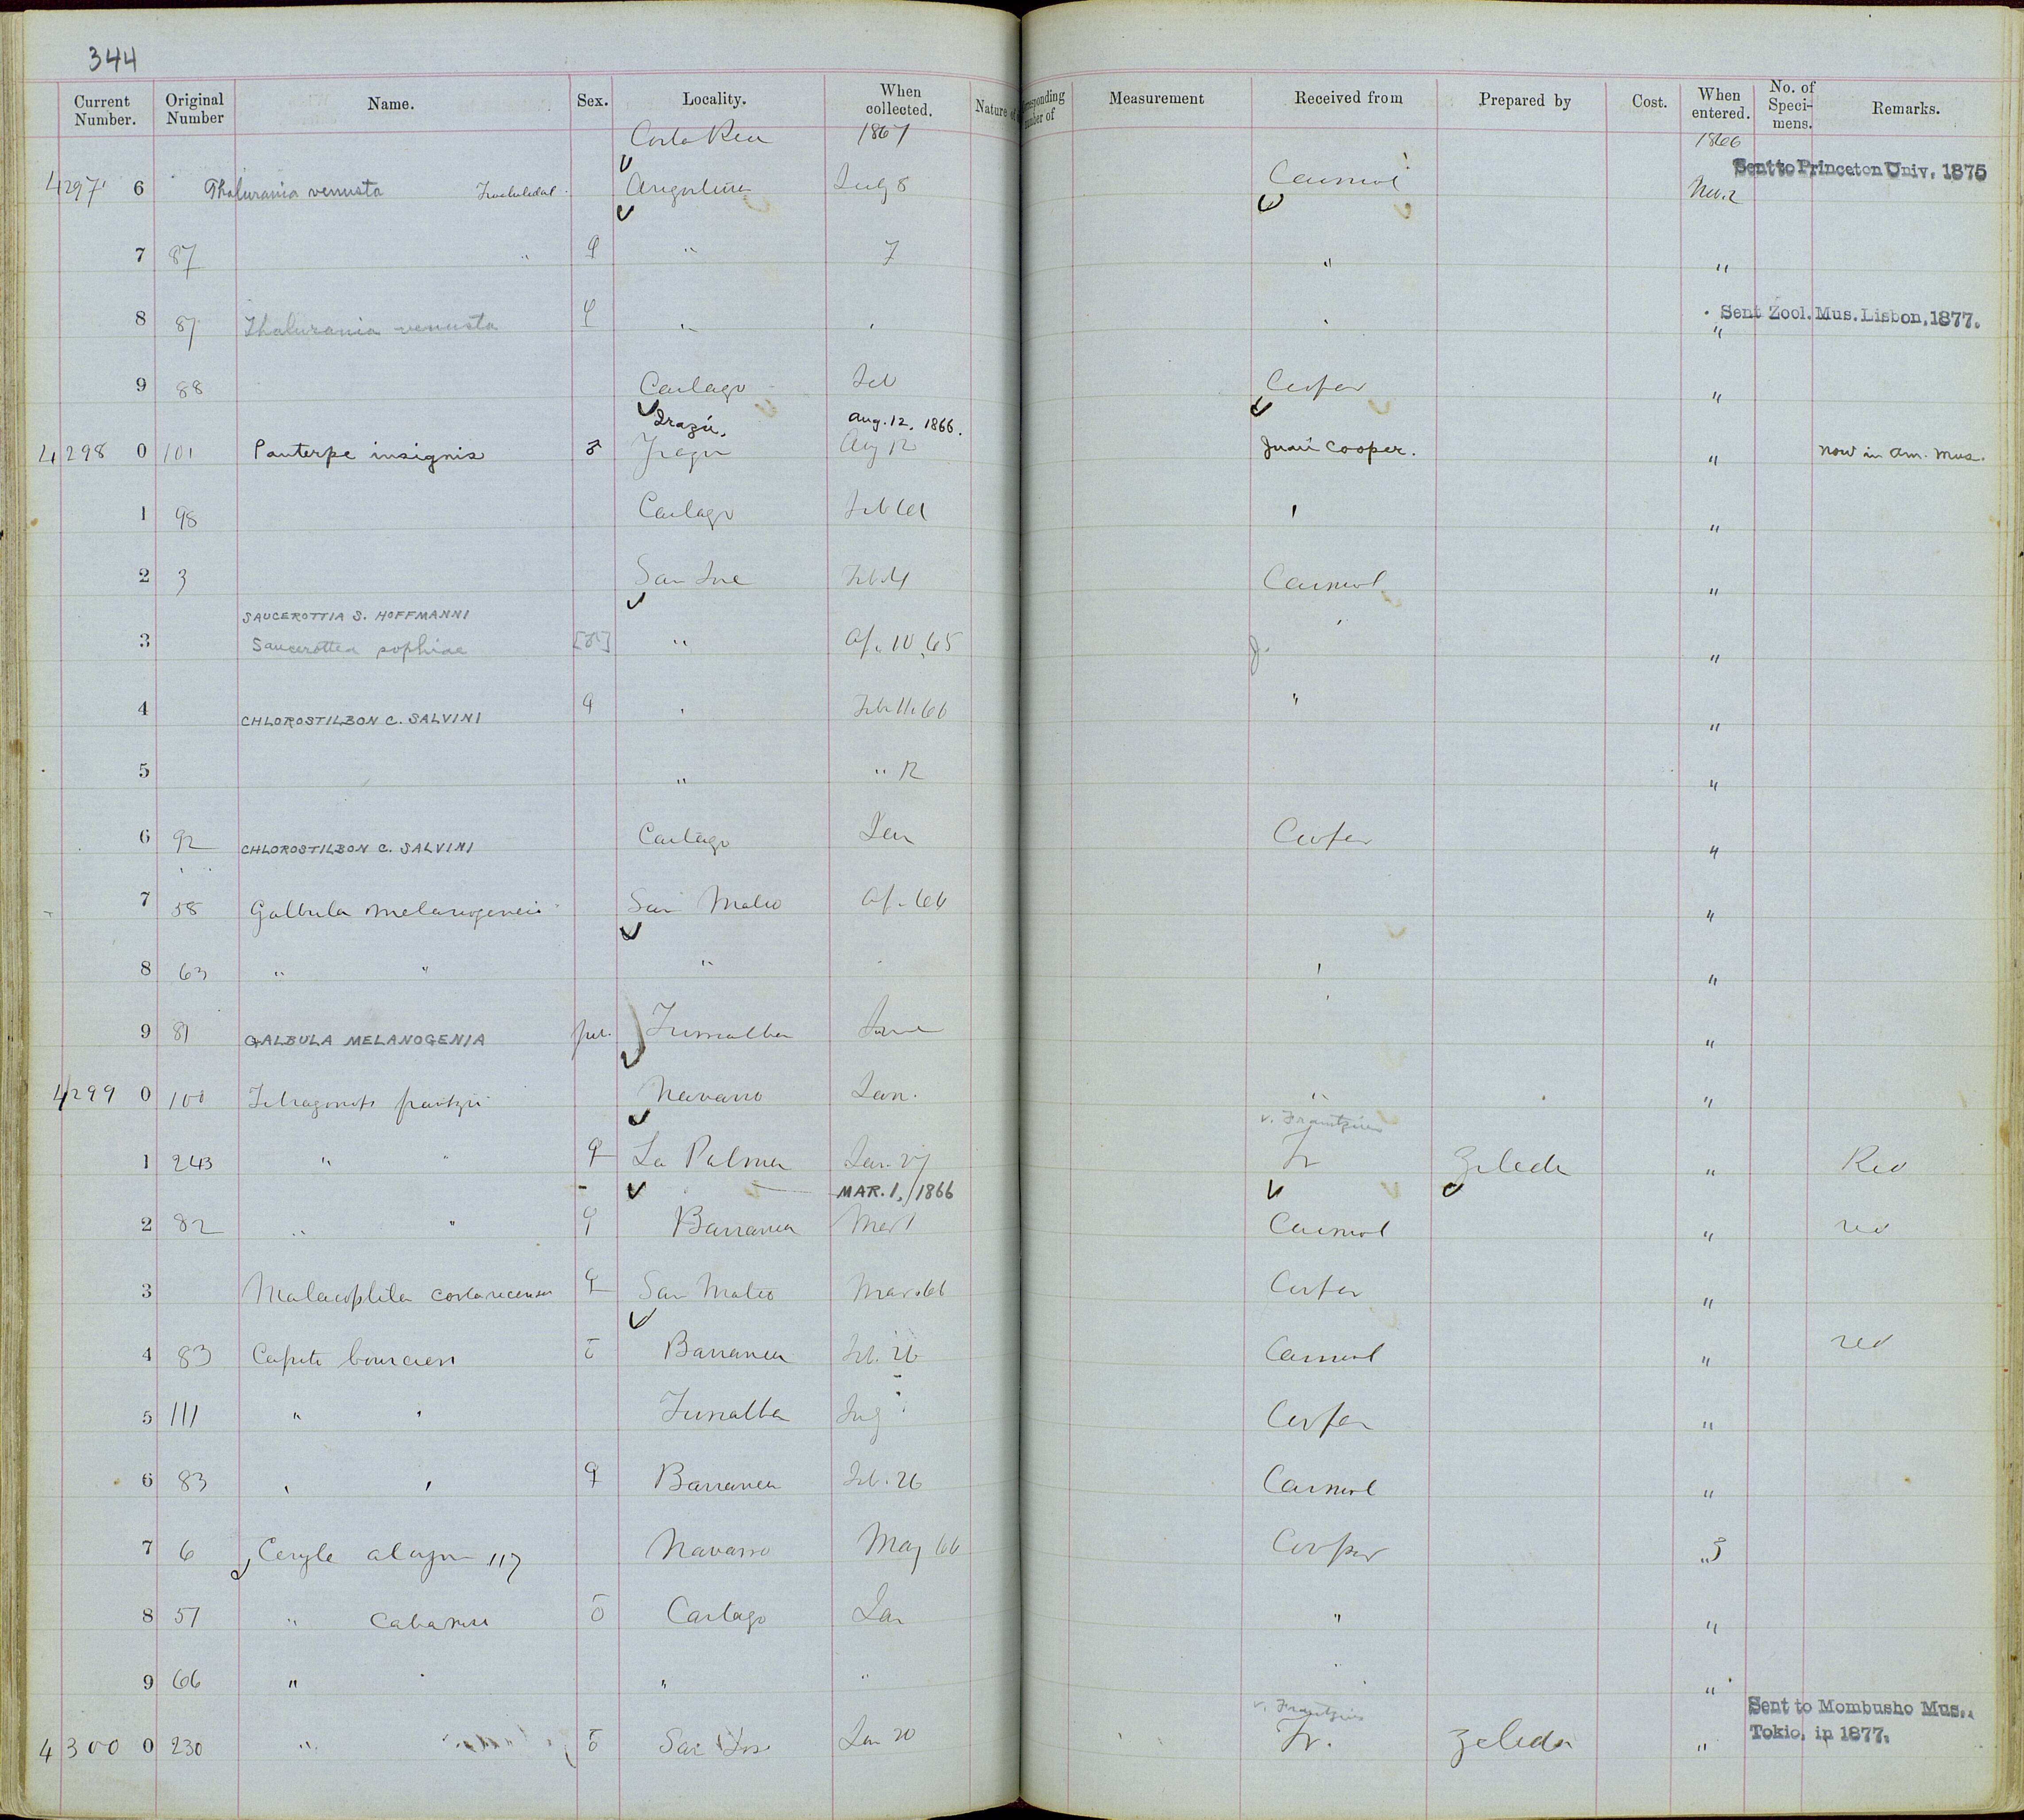 344
Current Number. Original Number Name. Sex. Locality. When collected. Nature of Corresponding number of Measurement Received from Prepared by Cost. When entered. No. of Speci-mens. Remarks.
Costa Rica 1867 1866
Sent to Princeton Univ. 1875
4297 6 Thalurania venusta Angostura July 8 Carmiol Nov. 2
7 87 " ♀ " 7 " "
8 87 Thalurania venusta ♀ " " " " Sent Zool. Mus. Lisbon, 1877.
9 88 Cartago Feb Cooper "
Irazú. Aug. 12, 1866.
4298 0 101 Panterpe insignis ♂ Irazu Aug 12 Juan Cooper. " now in Am. Mus.
1 98 Cartago Feb ' "
2 3 San Jose Feb Carmiol "
SAUCEROTTIA S. HOFFMANNI
3 Saucerottea sophiae [♂] " Ap. 10, 65 ' "
4 CHLOROSTILBON C. SALVINI ♀ " Feb 11. 66 " "
5 " " 12 "
6 92 CHLOROSTILBON C. SALVINI Cartago Jan Cooper "
7 58 Galbula melanogenia San Mateo Ap. 66 "
8 63 " " " ' "
9 81 GALBULA MELANOGENIA juv. Turrialba June "
4299 0 100 Tetragonops frantzii Navarro Jan. " "
v. Frantzius
1 243 " " ♀ La Palma Jan. 27 Fr Zeledon " Red
MAR. 1, 1866
2 82 " " ♀ Barranca Mar 1 Carmiol " red
3 Malacoptila costaricensis ♀ San Mateo Mar. 66 Cooper "
4 83 Capito bourcieri ♂ Barranca Feb. 26 Carmiol " red
5 111 " " Turrialba Cooper "
6 83 " " ♀ Barranca Feb. 26 Carmiol "
7 6 Ceryle alcyon 117 Navarro May 66 Cooper " 3
8 51 " Cabanisi ♂ Cartago Jan " "
9 66 " " " " " "
v. Frantzius
Sent to Mombusho Mus.,
4300 0 230 " ♂ San Jose Jan 20 Fr. Zeledon " Tokio, in 1877.